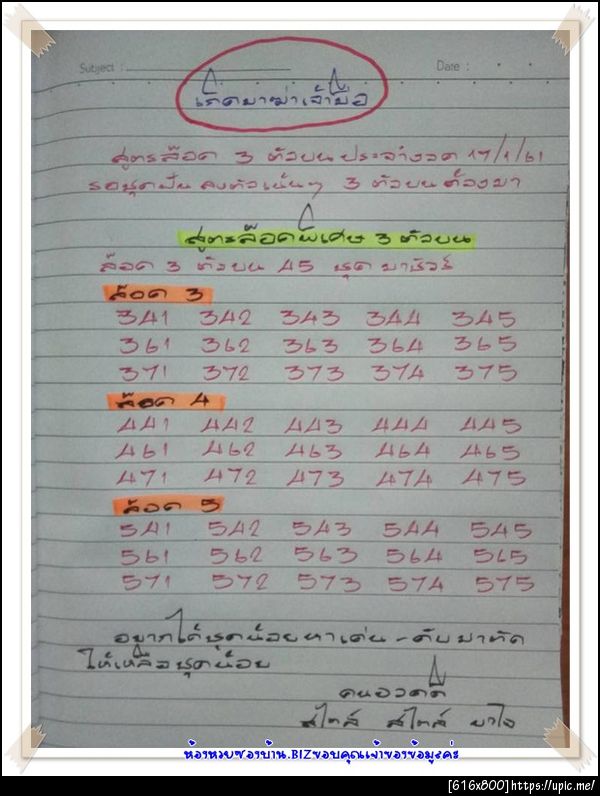 Subject :
Date :
เกิดมาฆ่าเจ้ามือ
สูตรล๊อค 3 ตัวบนประจำงวด 17/1/61
รอชุดฝัน ลงตัวเน้นๆ 3 ตัวบนต้องมา
สูตรล๊อคพิเศษ 3 ตัวบน
ล๊อค 3 ตัวบน 45 ชุด มาชัวร์
ล๊อค 3
341 342 343 344 345
361 362 363 364 365
371 372 373 374 375
ล๊อค 4
441 442 443 444 445
461 462 463 464 465
471 472 473 474 475
ล๊อค 5
541 542 543 544 545
561 562 563 564 565
571 572 573 574 575
อยากได้ชุดน้อยหาเด่น-ดับมาตัด
ให้เหลือชุดน้อย
คนอวดดี
สไตล์ สไตล์
ห้องหวยซองบ้าน.BIZขอบคุณเจ้าของข้อมูลค่ะ
[616x800]https://upic.me/